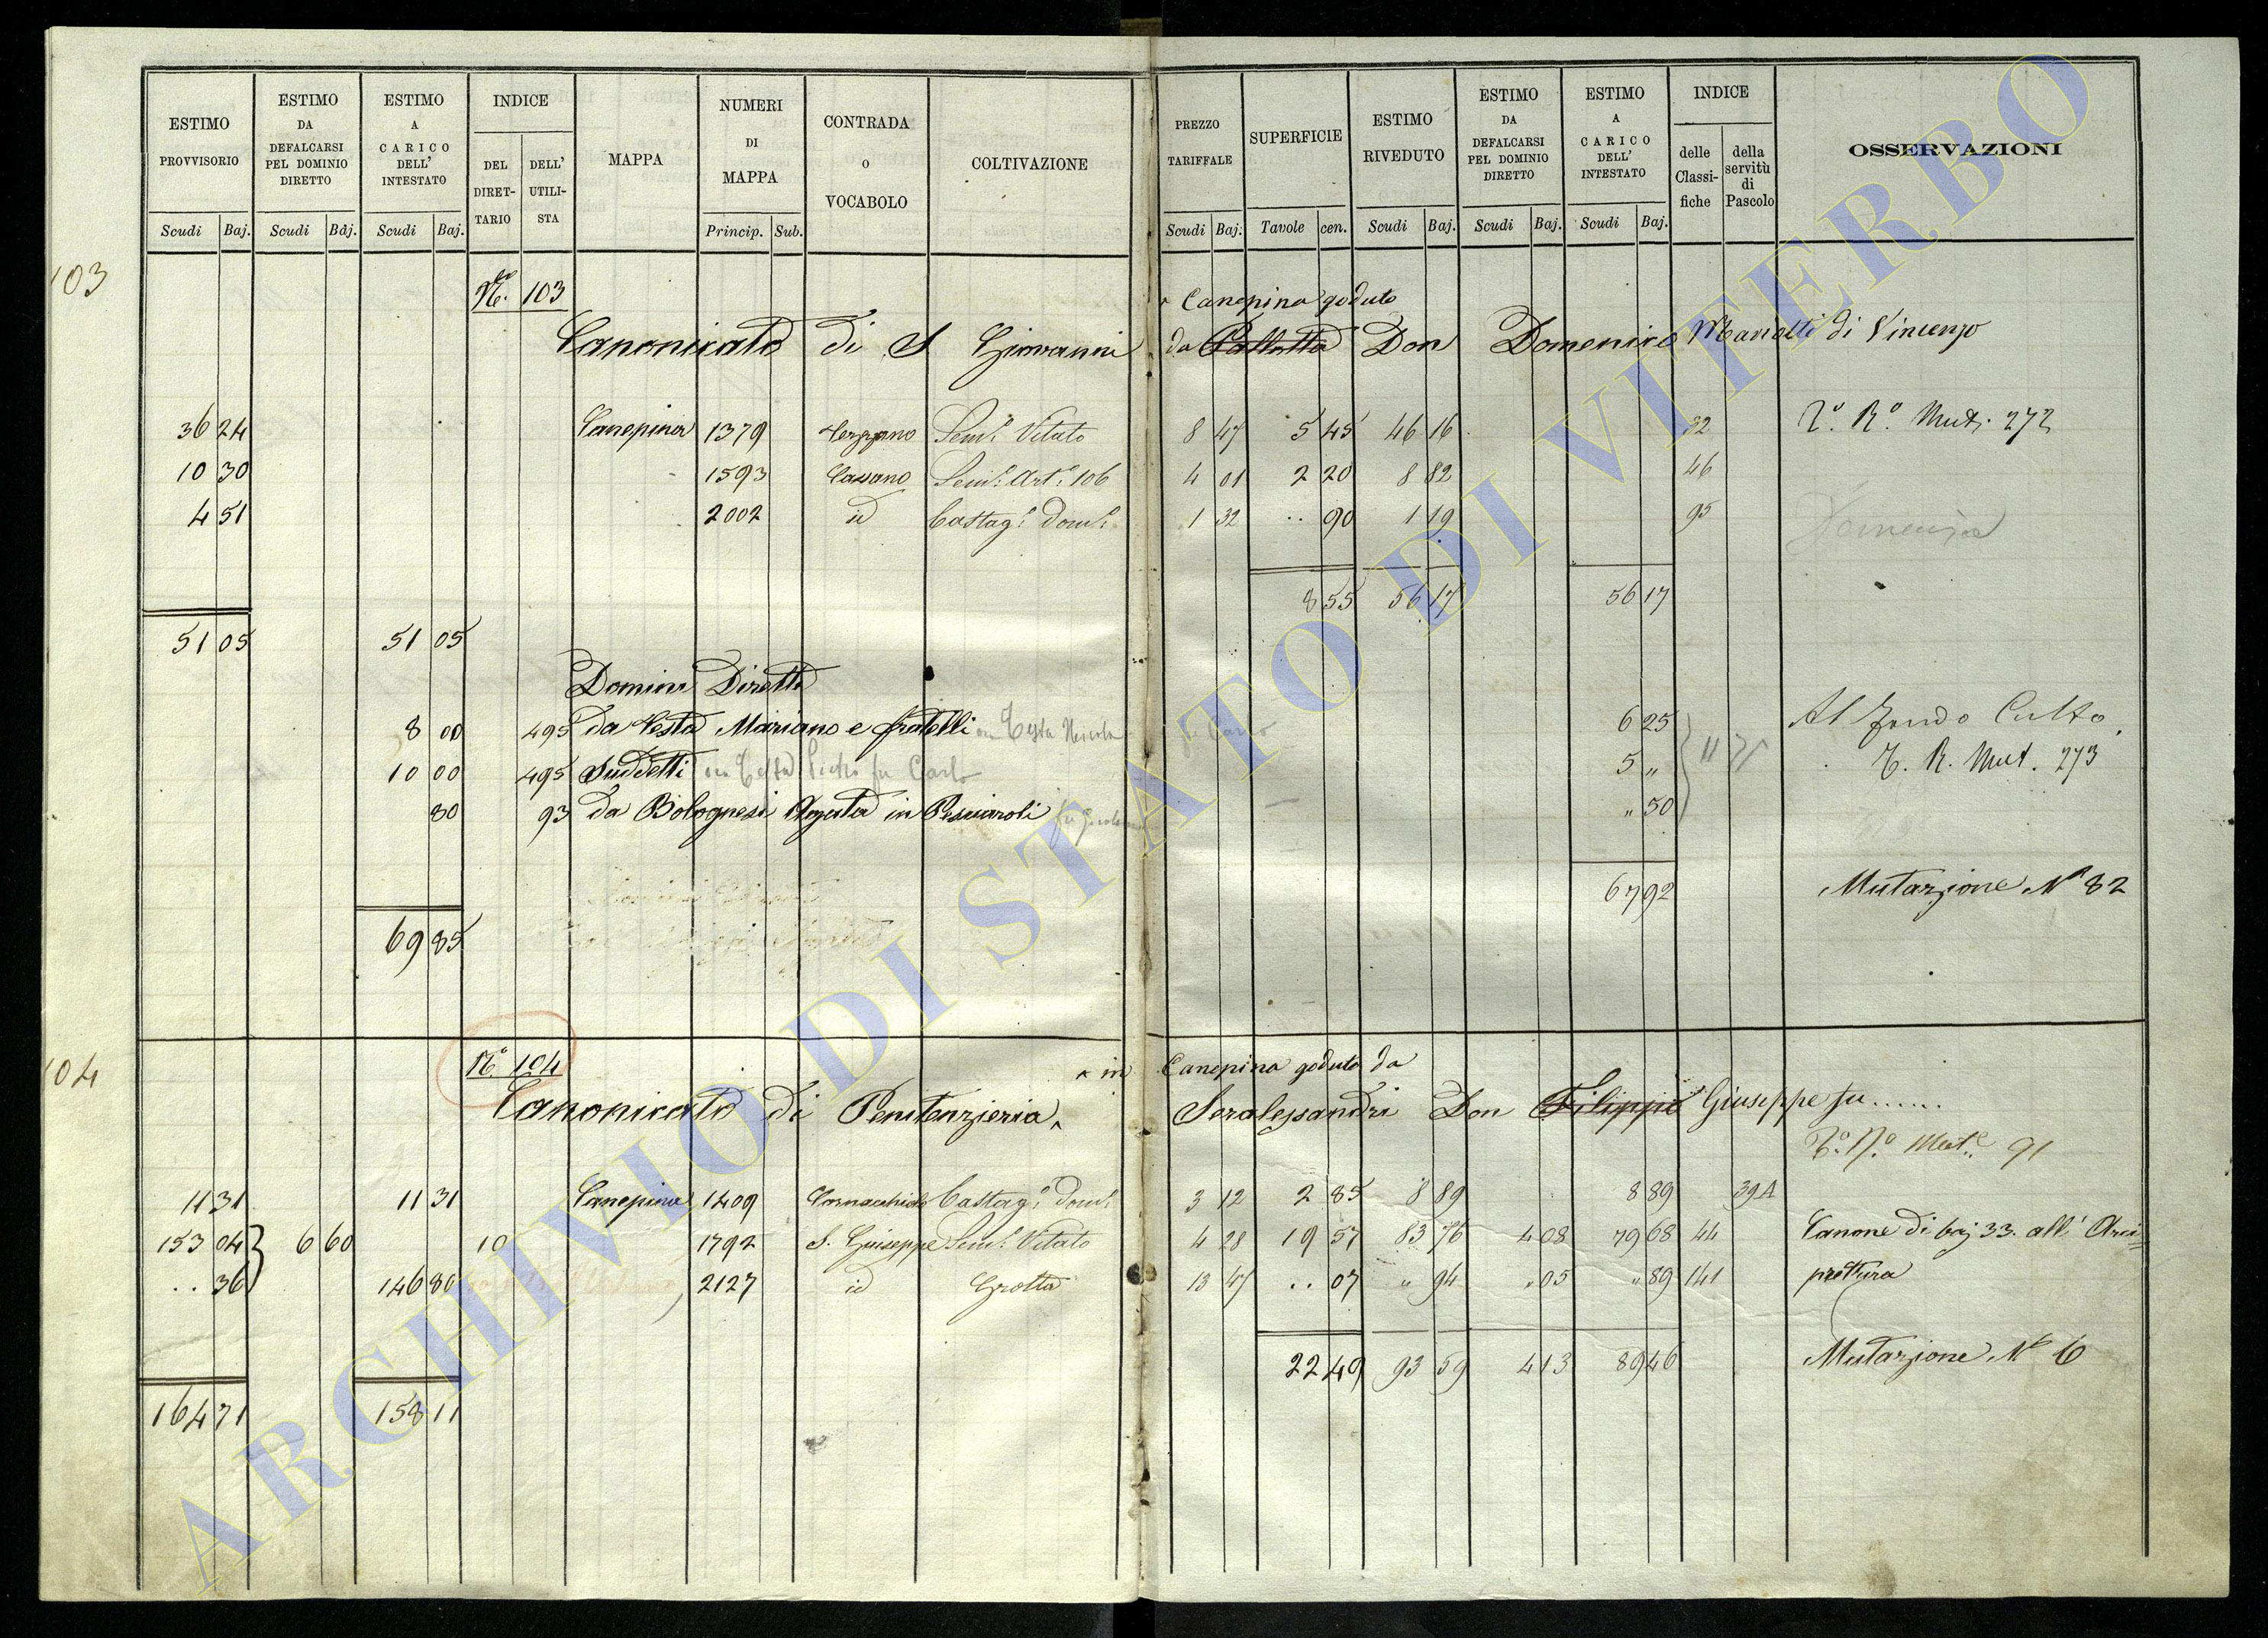 ESTIMO PROVVISORIO Scudi Baj.
ESTIMO DA DEFALCARSI PEL DOMINIO DIRETTO Scudi Baj.
ESTIMO A CARICO DELL' INTESTATO Scudi Baj.
INDICE DEL DIRET- TARIO DELL' UTILI- STA
MAPPA
NUMERI DI MAPPA Princip. Sub.
CONTRADA O VOCABOLO
COLTIVAZIONE
PREZZO TARIFFALE Scudi Baj.
SUPERFICIE Tavole cen.
ESTIMO RIVEDUTO Scudi Baj.
ESTIMO DA DEFALCARSI PEL DOMINIO DIRETTO Scudi Baj.
ESTIMO A CARICO DELL' INTESTATO Scudi Baj.
INDICE delle Classi- fiche della servitù di Pascolo
OSSERVAZIONI
103
No. 103
Canepina goduto
Canonicato di S Giovanni da Don Domenico Mariotti di Vincenzo
36 24 Canepina 1379 Semi. Vitato 8 47 5 45 46 16 32 To. Ro. Mut. 272
10 30 1593 Cassano Semi. Arto. 106 4 01 2 20 8 82 46
4 51 2002 id Castago. Domo. 1 32 .. 90 1 19 95
8 55 56 17 56 17
51 05 51 05
Domini Diretti
8 00 495 da Testa Mariano e fratelli ora Testa Nicola fu Carlo 6 25 Al Fondo Culto
10 00 495 Suddetti ora Testa Pietro fu Carlo 5 „ T. R. Mut. 273
80 93 da Bolognesi Agata in Pesciaroli „ 50
67 92 Mutazione No 82
69 85
104
No 104
^ in Canepina goduto da
Canonicato di Penitenzieria ^ Seralessandri Don Filippo Giuseppe fu......
To. Ro. Mute. 91
11 31 11 31 Canepina 1409 Cornacchiola Castago. Domo. 3 12 2 85 8 89 8 89 39A
153 04 6 60 10 1792 S. Giuseppe Semo. Vitato 4 28 19 57 83 76 4 08 79 68 44 Canone di baj 33. all' Arci=
.. 36 146 80 2127 id Grotta 13 47 .. 07 „ 94 „ 05 „ 89 141 prettura
22 49 93 59 4 13 89 46 Mutazione No 6
164 71 158 11
ARCHIVIO DI STATO DI VITERBO